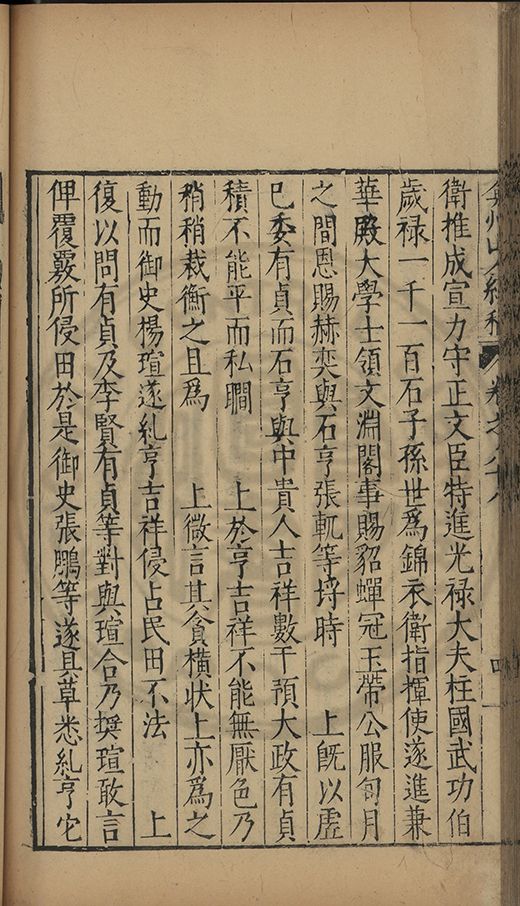 弇州山人續稿 卷之八十八 四
衛推成宣力守正文臣特進光禄大夫柱國武功伯
歲禄一千一百石子孫世爲錦衣衛指揮使遂進兼
華殿大學士領文淵閣事賜貂蟬冠玉帶公服旬月
之間恩賜赫奕與石亨張軏等埒時　上旣以虚
已委有貞而石亨與中貴人吉祥數干預大政有貞
積不能平而私瞷　上於亨吉祥不能無厭色乃
稍稍裁衡之且爲　上微言其貪橫狀上亦爲之
動而御史楊瑄遂糺亨吉祥侵占民田不法　上
復以問有貞及李賢有貞等對與瑄合乃奬瑄敢言
俾覆覈所侵田於是御史張鵬等遂具草悉糺亨它